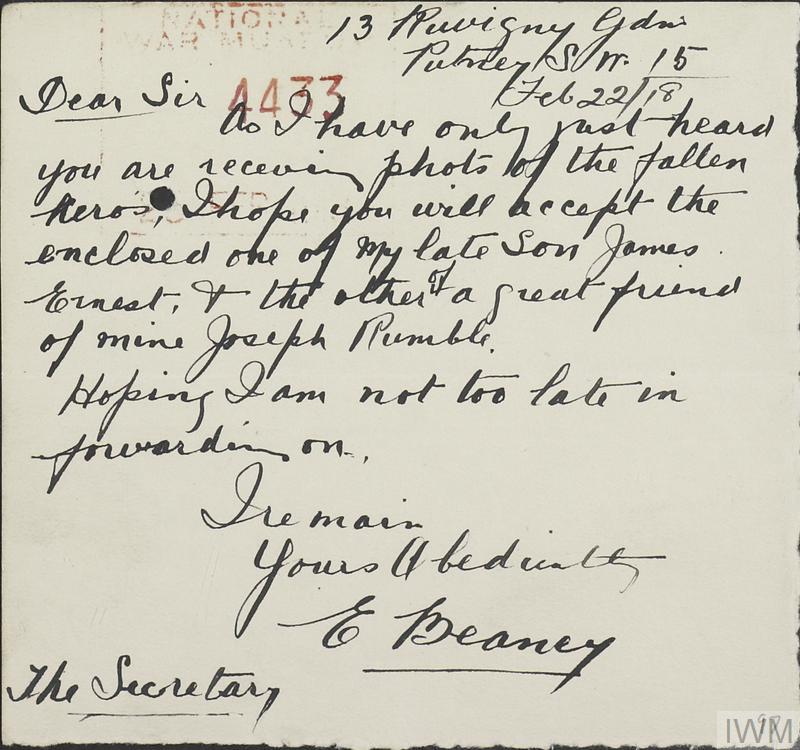 NATIONAL
WAR MUSEUM
13 Ruvigny Gdns
Putney S.W. 15
Feb 22/18
Dear Sir 4433
As I have only just heard
you are receving phots of the fallen
heros, I hope you will accept the
enclosed one of my late Son James
Ernest, & the other of a great friend
of mine Joseph Rumble.
Hoping I am not too late in
forwarding on,
I remain
Yours Obediently
E Beaney
The Secretary
IWM